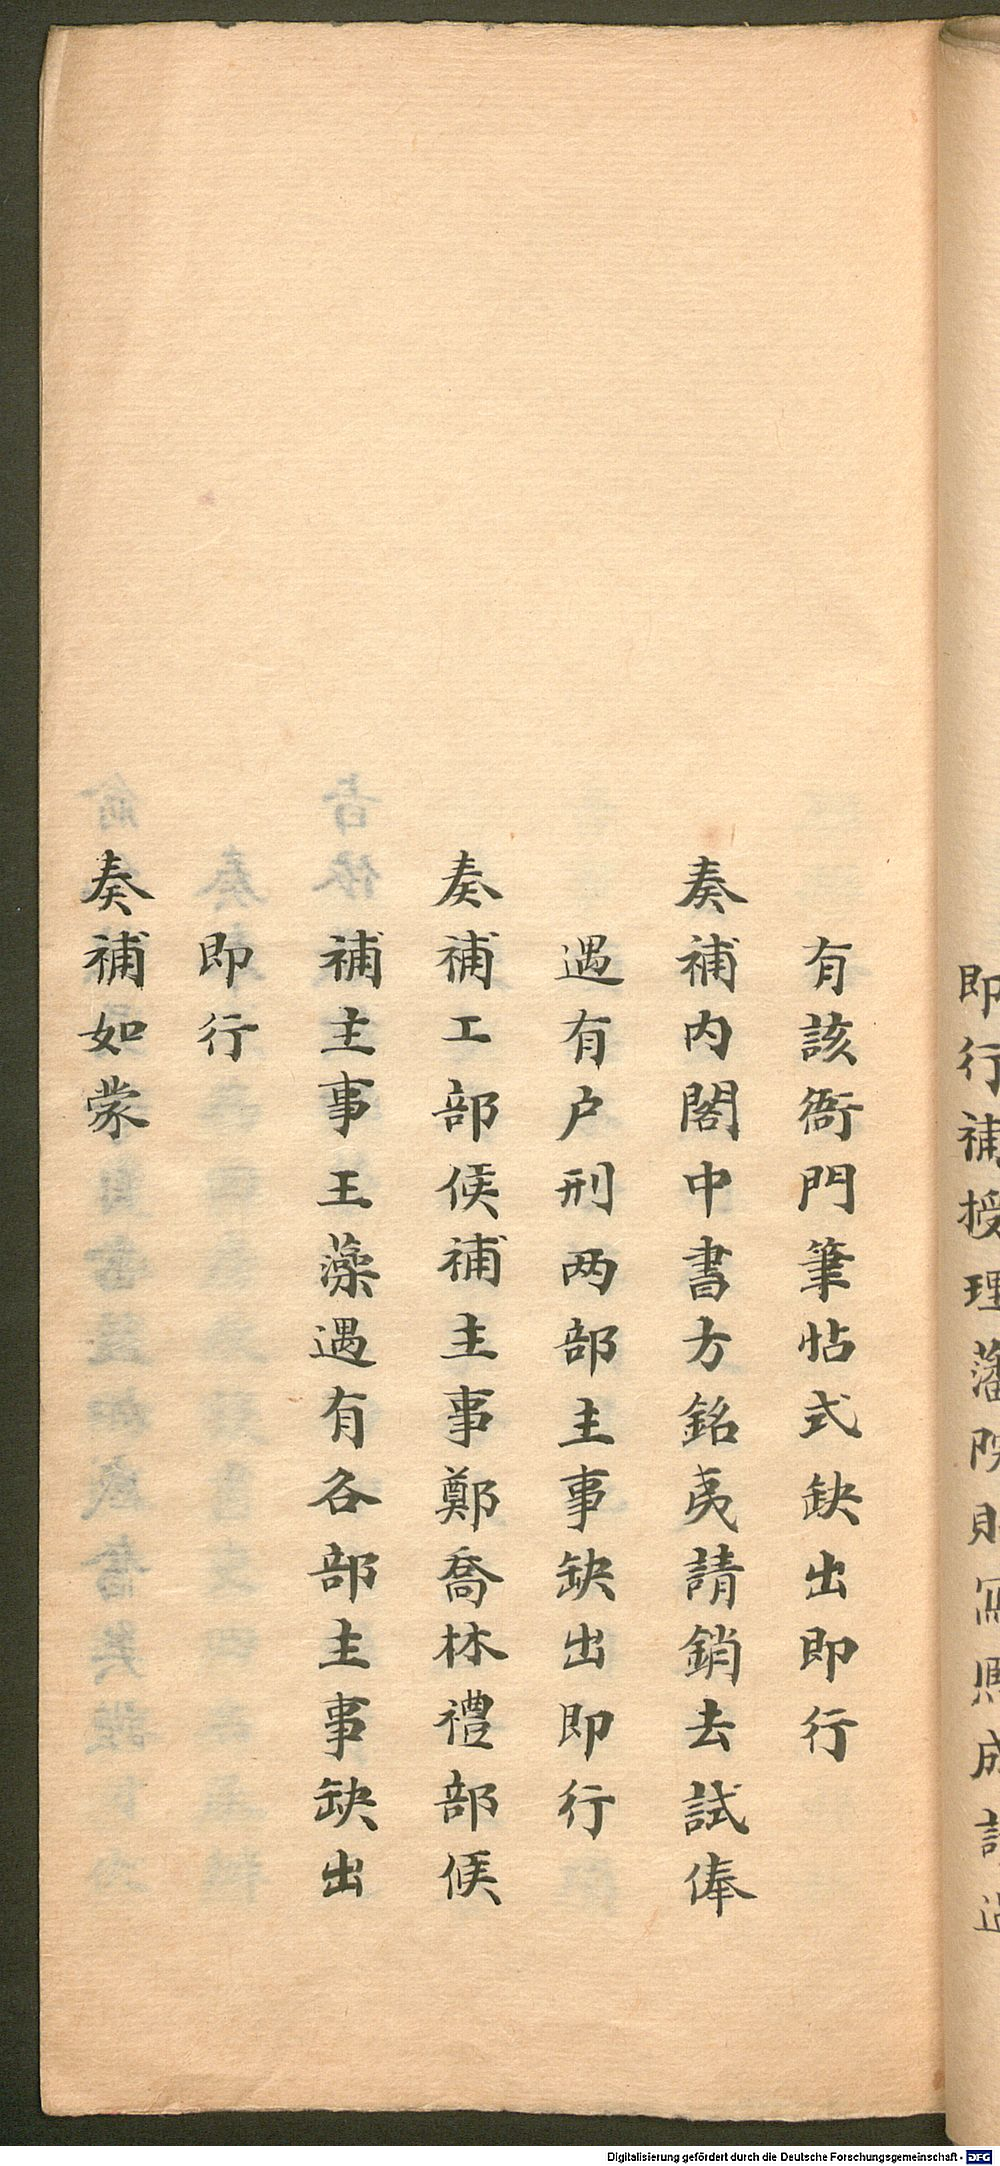 即行補授理藩院
有該衙門筆帖式缺出即行
奏補内閣中書方銘彛請銷去試俸
遇有户刑两部主事缺出即行
奏補工部候補主事鄭喬林禮部候
補主事王藻遇有各部主事缺出
即行
奏補如蒙
Digitalisierung gefördert durch die Deutsche Forschungsgemeinschaft - DFG